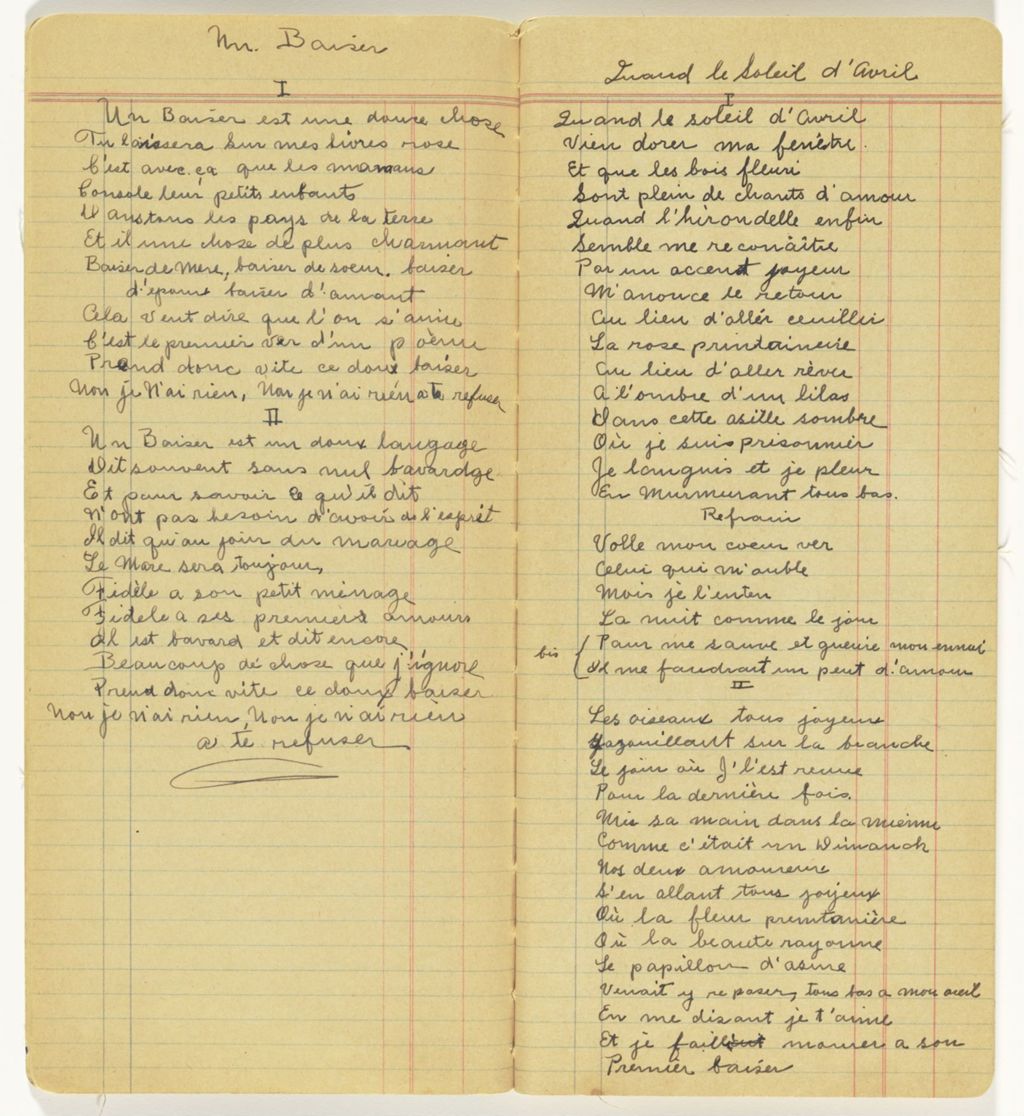 Un. Baiser
I
Un Baiser est une douce chose
Tu laissera sur mes livres rose
C'est avec ça que les mamans
Console leur petits enfants
Dans tous les pays de la terre
Et il une chose de plus charmant
Baiser de Mere, baiser de soeur. baiser
d'epoux baiser d'amant
Cela veut dire que l'on s'aime
C'est le premier ver d'un poème
Prend donc vite ce doux baiser
Non je N'ai rien, Non je n'ai rien a te refuser
II
Un Baiser est un doux langage
Dit souvent sans nul bavardge
Et pour savoir ce qu'il dit
N'ont pas besoin d'avoir de l'esprit
Il dit qu'au jour du mariage
Le Mare sera toujour,
Fidèle a son petit ménage
Fidele a ses premiers amours
Il est bavard et dit encore
Beaucoup de chose que j'ignore
Prend donc vite ce doux baiser
Non je n'ai rien, Non je n'ai rien
a te refuser
Quand le Soleil d'Avril
I
Quand le soleil d'Avril
Vien dorer ma fenêtre.
Et que les bois fleuri
Sont plein de chants d'amour
Quand l'hirondelle enfin
Semble me reconâitre
Par un accent joyeur
M'anonce le retour
Au lieu d'allér ceuillir
La rose printainerie
Au lieu d'aller rêver
A l'ombre d'un lilas
Dans cette asille sombre
Où je suis prisonnier
Je languis et je pleur
En Murmurant tous bas.
Refrain
Volle mon coeur ver
Celui qui m'ouble
Mais je l'enten
La nuit comme le jour
bis
Pour me sauve et guerie mon ennui
Il me faudrait un peut d'amour
II
Les oiseaux tous joyeux
gazouillant sur la branche
Le jour où J'l'est revue
Pour la dernière fois.
Mis sa main dans la mienne
Comme c'était un Dimanch
Nos deux amoureux
S'en allant tous joyeux
Où la fleur premtanière
Où la beaute rayonne
Le papillon d'asure
Venait y reposer, tous bas a mon oreil
En me disant je t'aime
Et je faill mourer a son
Premiêr baiser